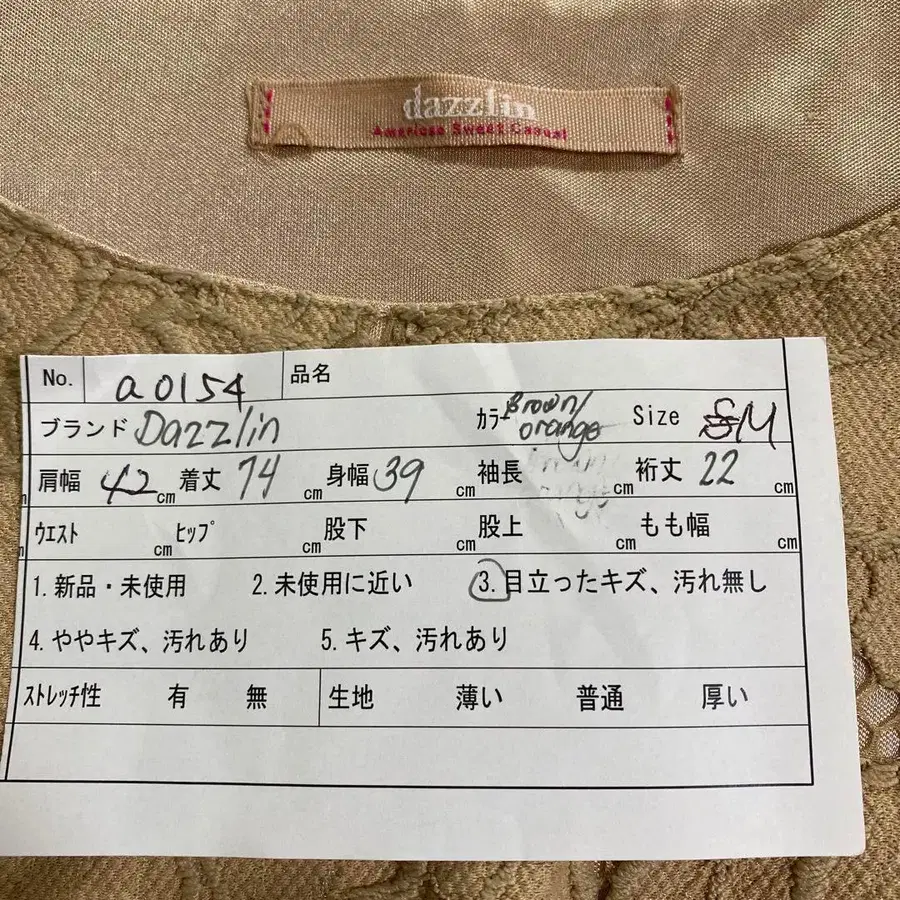 dazzlin
American Sweet Casual
No. a0154 品名
ブランド Dazzlin カラー Brown/orange Size M
肩幅 42 cm 着丈 74 cm 身幅 39 cm 袖長 cm 裄丈 22 cm
ウエスト cm ヒップ cm 股下 cm 股上 cm もも幅 cm
1. 新品・未使用 2. 未使用に近い 3. 目立ったキズ、汚れ無し
4. ややキズ、汚れあり 5. キズ、汚れあり
ストレッチ性 有 無 生地 薄い 普通 厚い